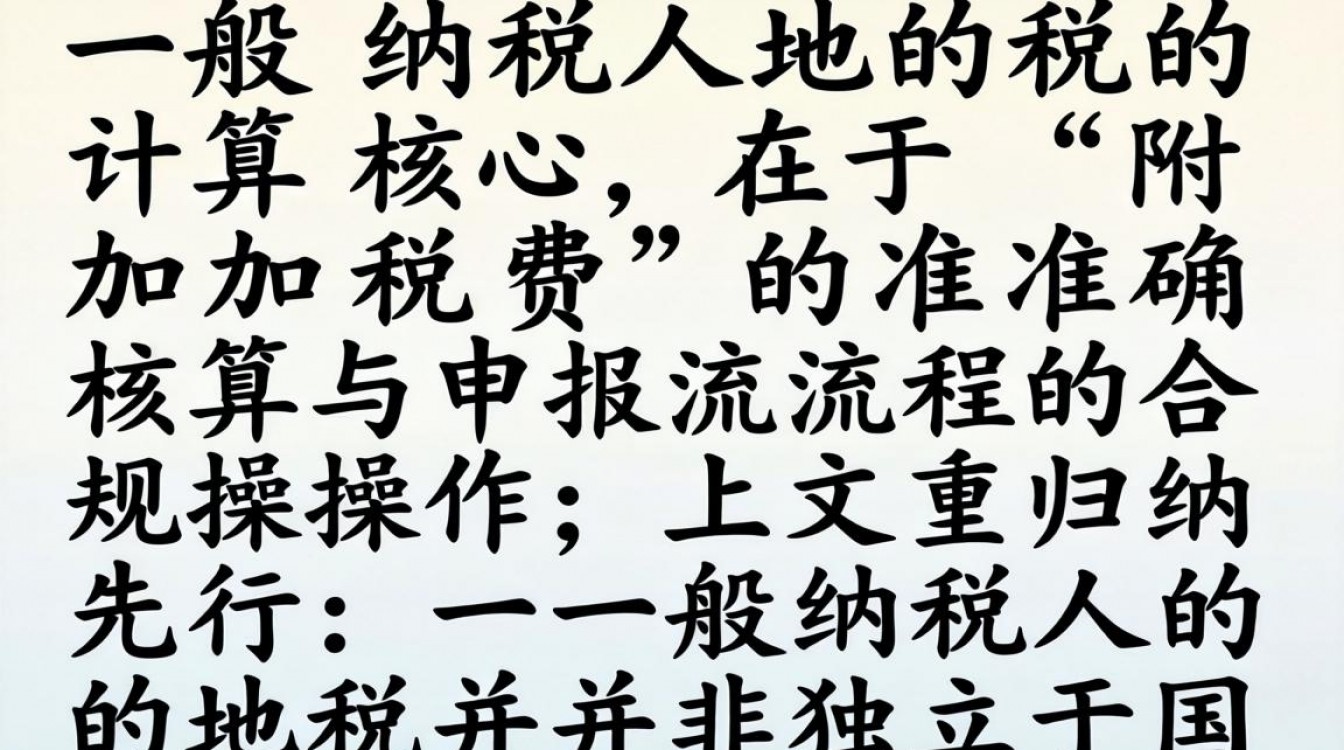 一般 纳税人地的税的
计算 核心，在于“附
加加税费”的准准确
核算与申报流流程的合
规操操作；上文重归纳
先行：一一般纳税人的
的地税并并非独立于国